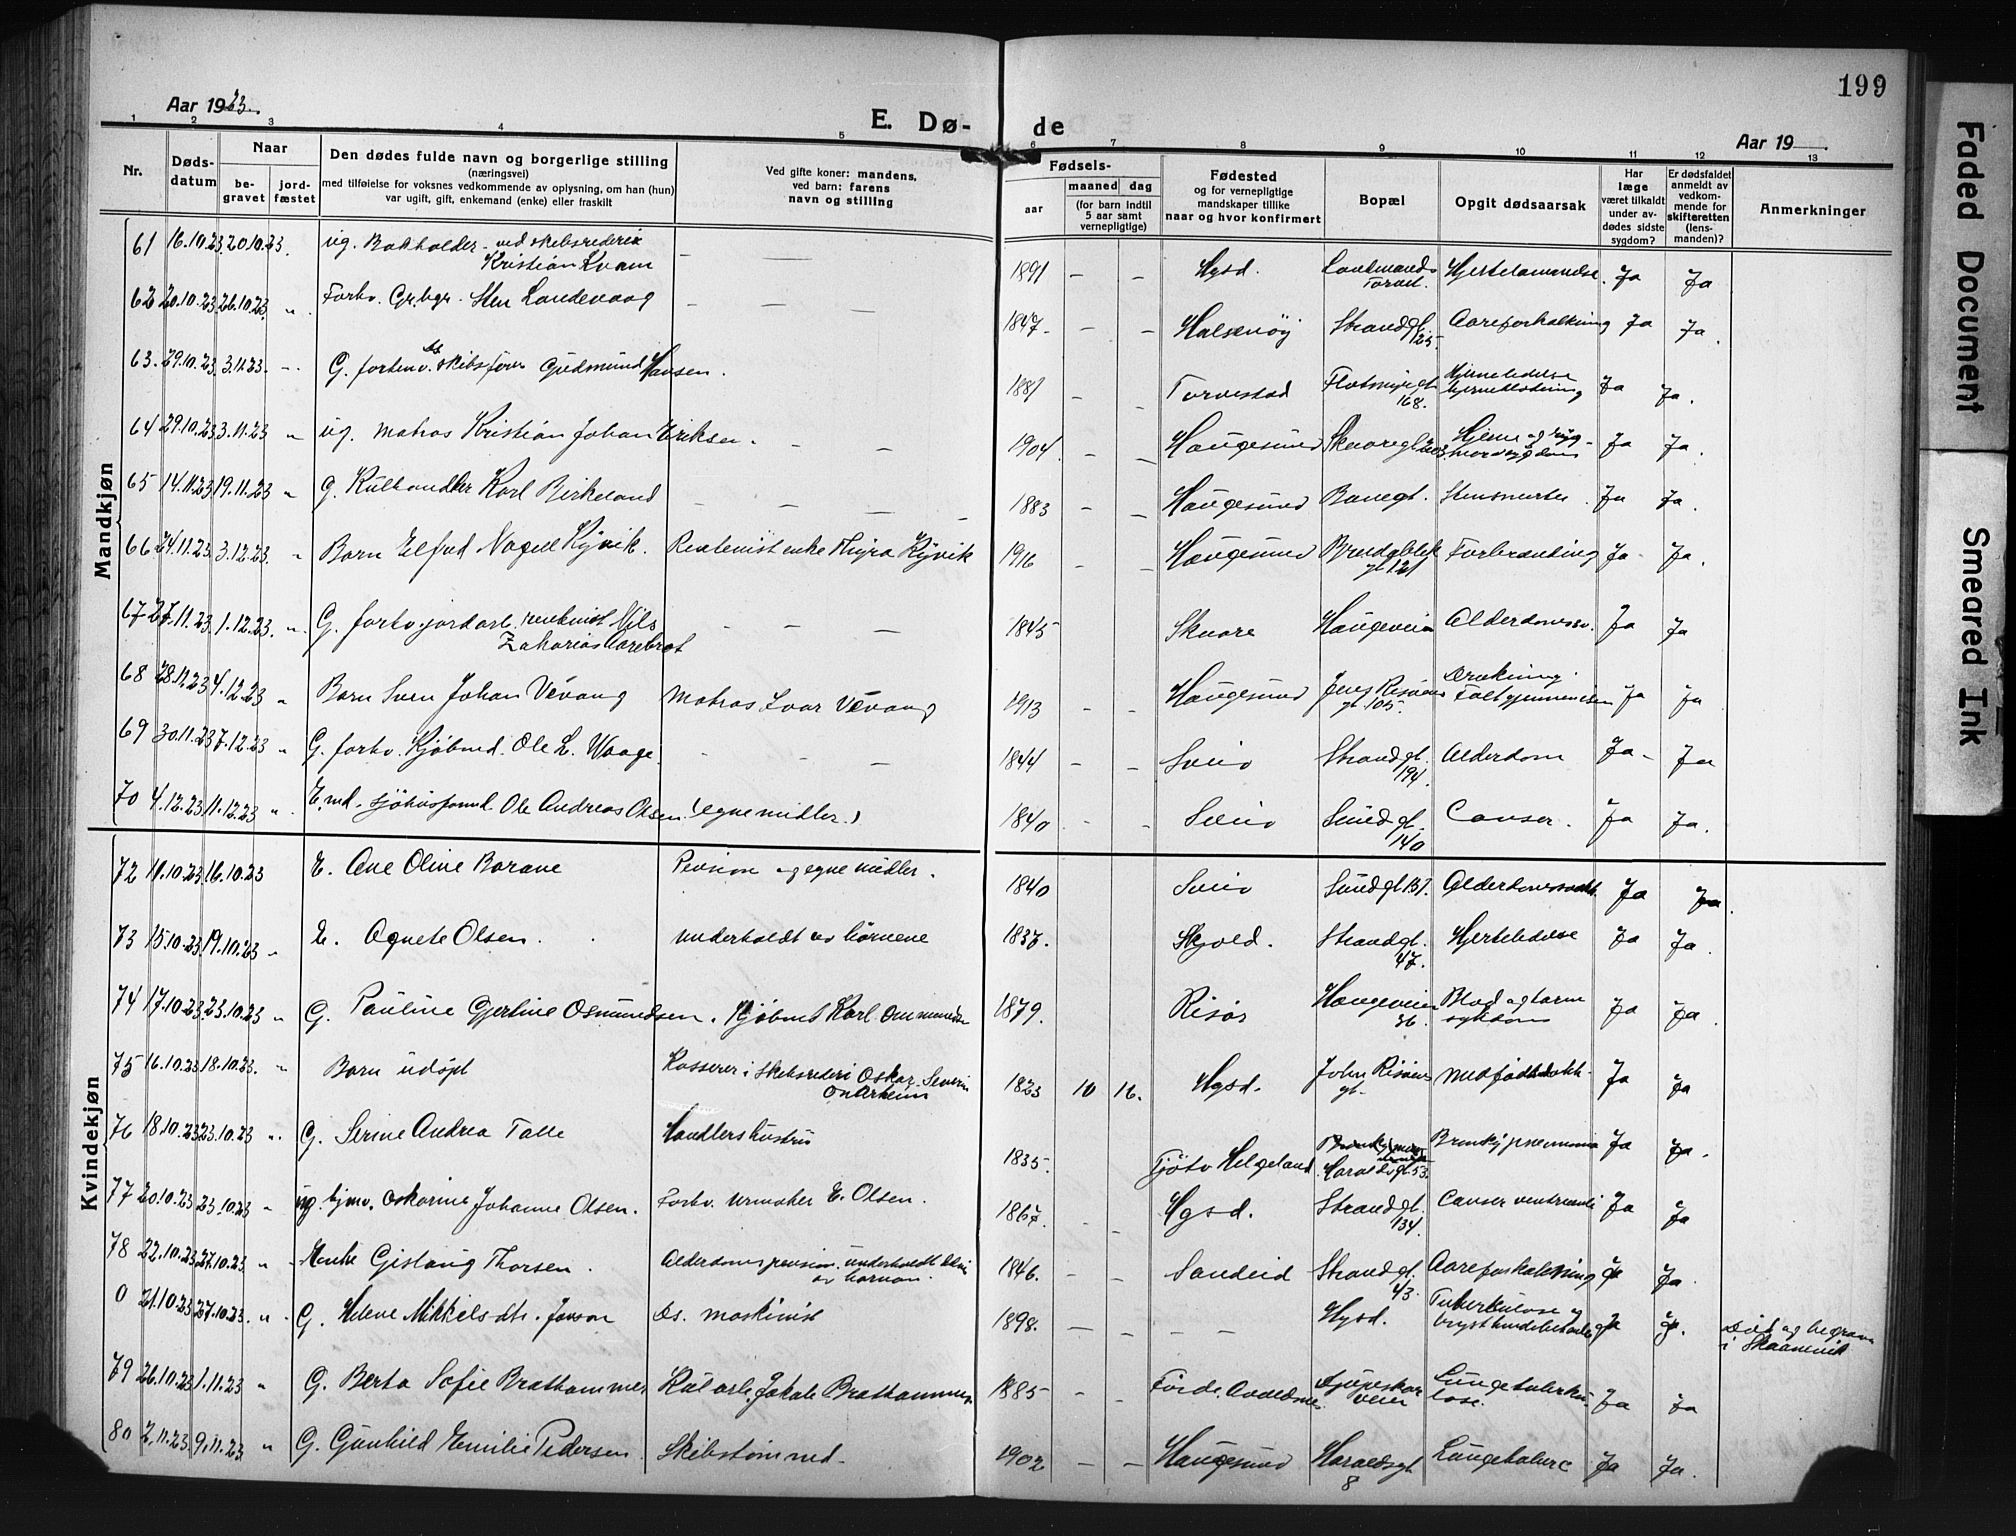 199
Aar 1923.
E. Dø-
de
Aar 19
1 2 3 4 5 6 7 8 9 10 11 12 13
Nr.
Døds-
datum
Naar
be-
gravet
jord-
fæstet
Den dødes fulde navn og borgerlige stilling
(næringsvei)
med tilføielse for voksnes vedkommende av oplysning, om han (hun)
var ugift, gift, enkemand (enke) eller fraskilt
Ved gifte koner: mandens,
ved barn: farens
navn og stilling
Fødsels-
aar
maaned
dag
(for barn indtil
5 aar samt
vernepligtige)
Fødested
og for vernepligtige
mandskaper tillike
naar og hvor konfirmert
Bopæl
Opgit dødsaarsak
Har
læge
været tilkaldt
under av-
dødes sidste
sygdom?
Er dødsfaldet
anmeldt av
vedkom-
mende for
skifteretten
(lens-
manden)?
Anmerkninger
Mandkjøn
61 16.10.23 20.10.23. ug. Bokholder ved skibsrederi
Kristian Kvam
1891 – – Hgsd. Ja Ja
62 20.10.23 26.10.23. " Forhv. Gr.bgr. Sten Landevaag
1847. – – Halsenøy Strandgt. 125. Aareforkalkning Ja Ja.
63. 29.10.23 3.11.23. G. forhenv. skibsfører Gudmund Hansen.
1881 – – Torvestad Flotmyrgt. 168. Ja Ja.
64 29.10.23 3.11.23 " ug. matros Kristian Johan Eriksen.
1904. – – Haugesund Ja Ja.
65 14.11.23 19.11.23 " G. Kulhandler Karl Birkeland
1883 – – Haugesund Banegt. Ja Ja.
66 24.11.23. 3.12.23. " Barn Elfred Kyvik. Rentenist enke Thyra Kyvik
1916 – – Haugesund gt 121 Forbrænding Ja Ja.
67 27.11.23. 1.12.23. " G. forhv. jordarb. Nils
Zakarias Aarebrot
1845 Skaare Haugeveien Ja Ja
68 28.11.23 4.12.23 " Barn Sven Johan Vevang Matros Ivar Vevang
1913 – – Haugesund Jens Risøens gt. 105. Drukning Ja Ja
69 30.11.23 7.12.23 " G. forhv. Kjøbmd. Ole L. Waage.
1844 – – Sveio Strandgt. 194. Alderdom Ja Ja
70 4.12.23 11.12.23 " E.md. Ole Andreas Olsen. (egne midler.)
1840 – – Sveio Sundgt. 140 Canser. Ja Ja.
Kvindekjøn
72 11.10.23 16.10.23 E. Ane Oline Borave Pension og egne midler.
1840 Sveio Sundgt 131. Ja Ja.
73 15.10.23. 19.10.23 " E. Agnete Olsen. underholdt av børnene
1837. Skjold. Strandgt. 47. Hjertelidelse Ja Ja.
74 17.10.23 23.10.23 " G. Pauline Gjertine Osmundsen. Kjøbmd Karl Osmundsen
1879. Risør Haugeveien 36. Ja Ja.
75 16.10.23 18.10.23. " Barn udøpt Kasserer i Skibsrederi Oskar Severin
1823 10 16. Hgsd. John Risøens gt. Ja Ja
76 18.10.23 23.10.23 " G. Serine Andrea Talle Handlershustru
1835. Tjøtv Helgeland Haraldsgt 53. Ja Ja.
77 20.10.23 23.10.23 " ug. hjmv. Oskarine Johanne Olsen. Forhv. urmaker E. Olsen.
1867. – – Hgsd. Strandgt. 134. Canser ventriculi Ja Ja
78 22.10.23 27.10.23 " Enke Gislaug Thorsen. Alderdomspension. underholdt
av barnan.
1846. – – Sandeid Strandgt. 43. Aareforkalkning Ja Ja.
0 21.10.23 27.10.23. " G. Helene Mikkelsdtr. Jonson ds. maskinist
1898. – – – – Hgsd. Tuberkulose og Ja Ja. Død og begravet
i Skaanevik
79 26.10.23 1.11.23 " G. Berta Sofie Brathammer Brathammer.
1885 – – Førde. Avaldsnes Djupeskar veien Lungetuberku-
lose. Ja Ja
80 2.11.23. 9.11.23 " G. Gunhild Emilie Pedersen. Skibstømmed.
1902 – – Haugesund Haraldsgt 8 Ja Ja.
Faded Document
Smeared Ink